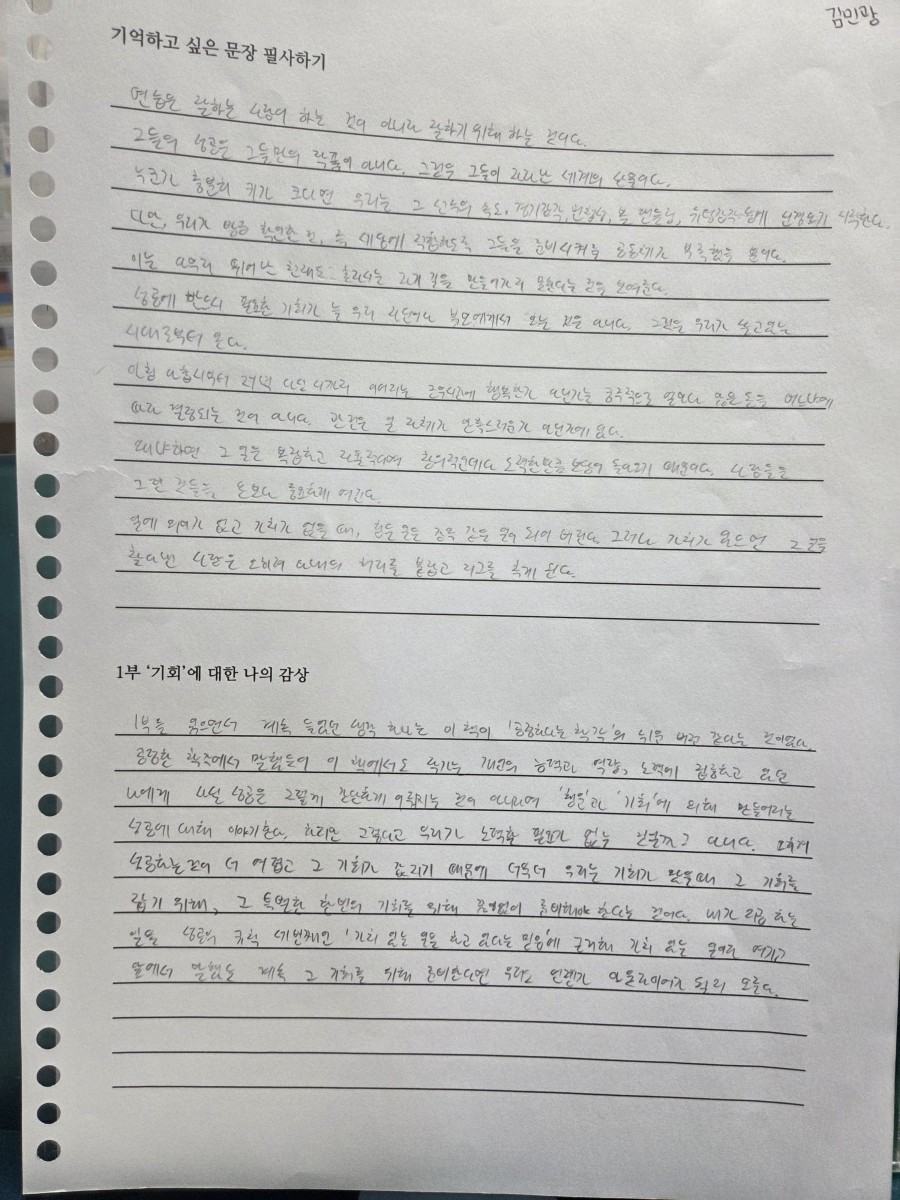 김민광
기억하고 싶은 문장 필사하기
연습은 잘하는 사람이 하는 것이 아니라 잘하기 위해 하는 것이다.
그들의 성공은 그들만의 작품이 아니다. 그것은 그들이 자라난 세계의 산물이다.
누군가 충분히 키가 크다면 우리는 그 선수의 속도, 경기감각, 민첩성, 볼 핸들링, 슈팅감각 등에 신경쓰기 시작한다.
다만, 우리가 방금 확인한 건, 즉 세상에 적합하도록 그들을 준비시켜줄 공동체가 부족했을 뿐이다.
이는 아무리 뛰어난 천재도 혼자서는 자기 길을 만들어가지 못한다는 것을 보여준다.
성공에 반드시 필요한 기회가 늘 우리 자신이나 부모에게서 오는 것은 아니다. 그것은 우리가 놓여있는
시대로부터 온다.
아침 아홉시부터 저녁 다섯시까지 이어지는 근무시간에 행복한가 아닌가는 궁극적으로 얼마나 많은 돈을 버느냐에
따라 결정되는 것이 아니다. 관건은 일 자체가 만족스러운가 아닌가에 있다.
왜냐하면 그 일은 복잡하고 자율적이며 창의적인데다 노력한만큼 보상이 돌아오기 때문이다. 사람들은
그런 것들을 돈보다 중요하게 여긴다.
일에 의미가 없고 가치가 없을 때, 힘든 일은 감옥 같은 일이 되어 버린다. 그러나 가치가 있으면 그 일을
찾아낸 사람은 오히려 아내의 허리를 붙잡고 지그를 추게 된다.
1부 ‘기회’에 대한 나의 감상
1부를 읽으면서 계속 들었던 생각 하나는 이 책이 '공정하다는 착각'의 쉬운 버전 같다는 것이었다.
공정한 착각에서 말했듯이 이 책에서도 작가는 개인의 능력과 역량, 노력에 집중하고 있던
나에게 사실 성공은 그렇게 간단하게 이뤄지는 것이 아니라며 '행운'과 '기회'에 의해 만들어지는
성공에 대해 이야기한다. 하지만 그렇다고 우리가 노력할 필요가 없는 것일까? 아니다. 오히려
성공하는 것이 더 어렵고 그 기회가 값지기 때문에 더욱더 우리는 기회가 왔을때 그 기회를
잡기 위해, 그 특별한 한번의 기회를 위해 끊임없이 준비해야 한다는 것이다. 내가 지금 하는
일을 성공의 규칙 세번째인 '가치 있는 일을 하고 있다는 믿음'에 근거해 가치 있는 일이라 여기고
앞에서 말했듯 계속 그 기회를 위해 준비한다면 우리도 언젠가 아웃라이어가 될지 모른다.